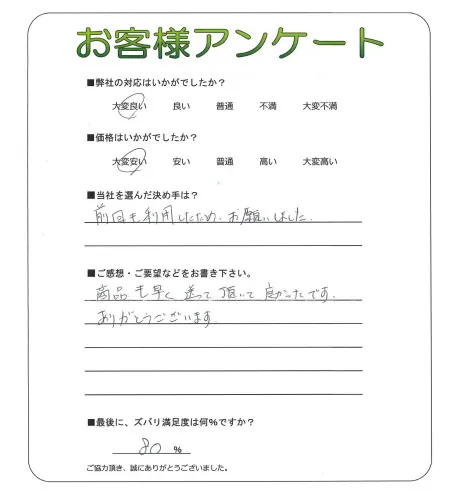 お客様アンケート
■弊社の対応はいかがでしたか？
大変良い 良い 普通 不満 大変不満
■価格はいかがでしたか？
大変安い 安い 普通 高い 大変高い
■当社を選んだ決め手は？
前回も利用したため、お願いしました.
■ご感想・ご要望などをお書き下さい。
商品も早く送って頂いて良かったです.
ありがとうございます.
■最後に、ズバリ満足度は何％ですか？
80 ％
ご協力頂き、誠にありがとうございました。